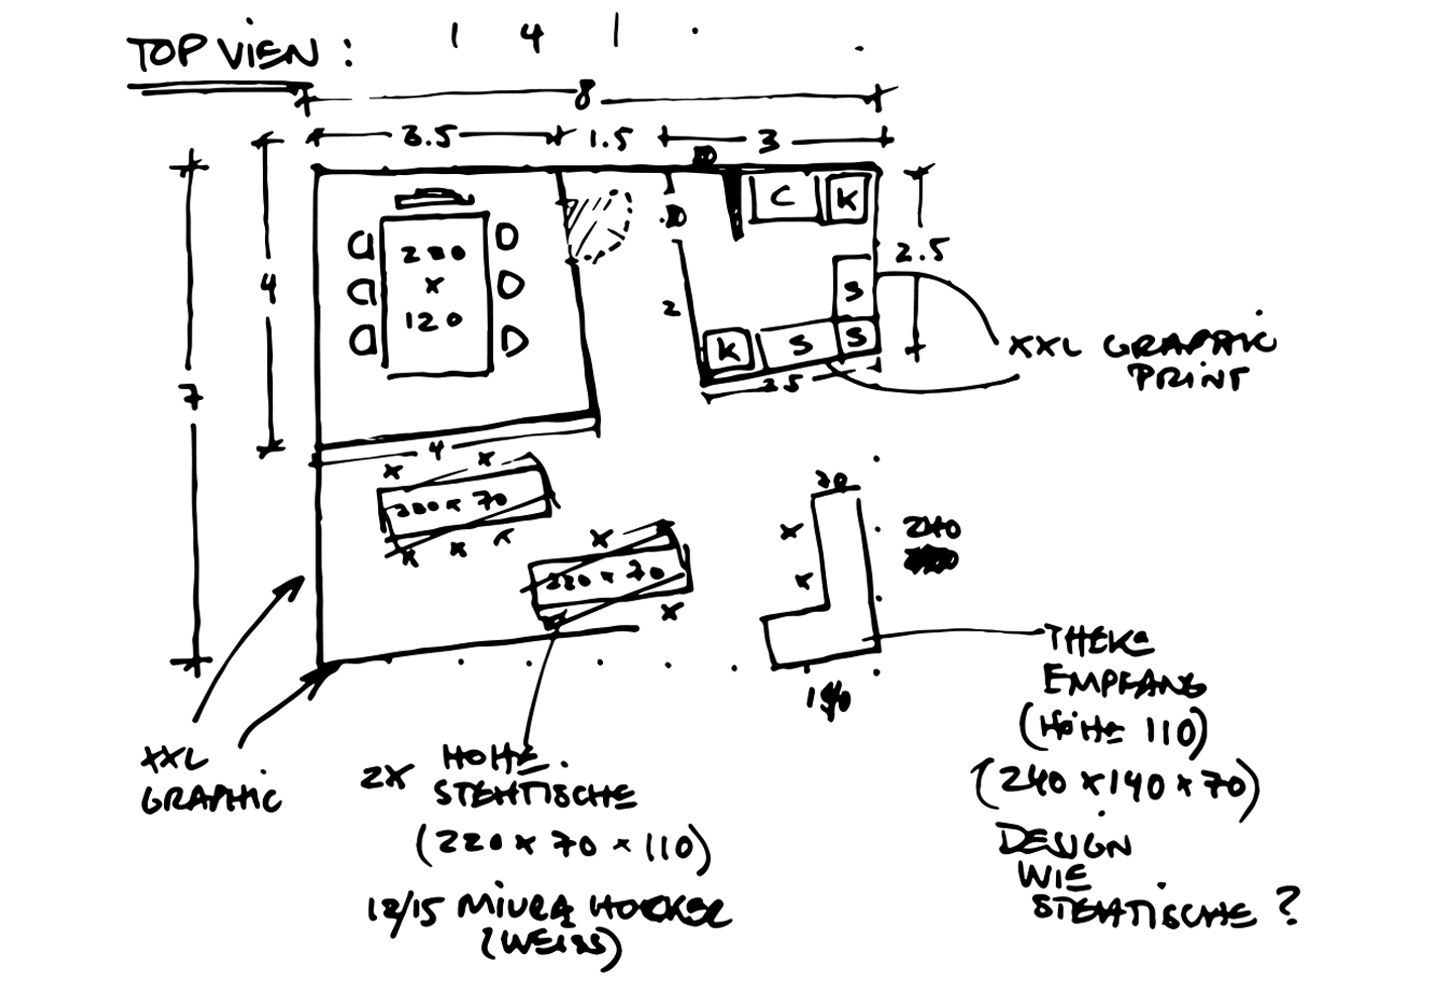 TOP VIEW :
4
8
3.5
1.5
3
C
K
4
2.5
200
x
120
2
S
K
S
S
XXL GRAPHIC
PRINT
7
4
220 x 70
70
240
220 x 70
THEKE
EMPFANG
(HÖHE 110)
140
XXL
GRAPHIC
2X
HOHE
STEHTISCHE
(240 x 140 x 70)
(220 x 70 x 110)
DESIGN
WIE
STEHTISCHE ?
12/15 MIURA HOCKER
(WEISS)